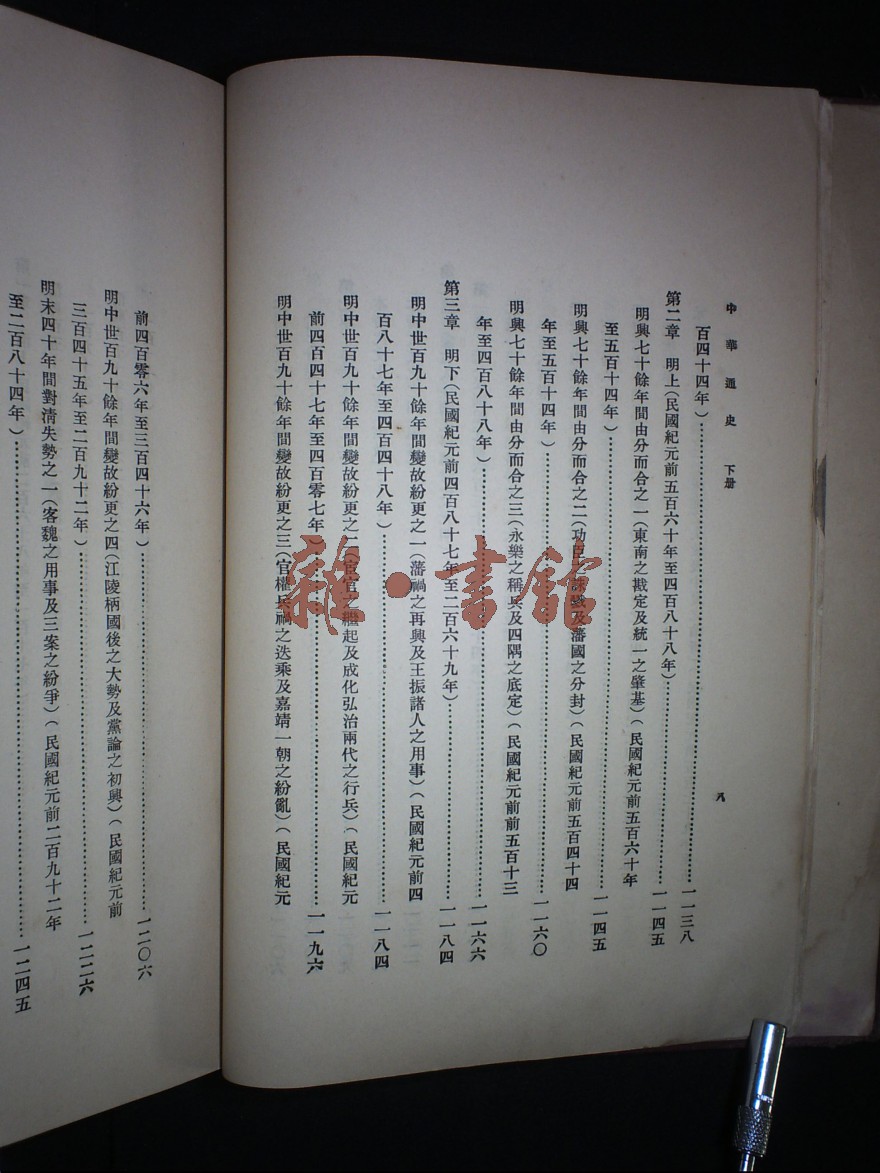 中華通史　下册
八
百四十四年）……一一三八
第二章　明上（民國紀元前五百六十年至四百八十八年）……一一四五
明興七十餘年間由分而合之一（東南之戡定及統一之肇基）（民國紀元前五百六十年
至五百十四年）……一一四五
明興七十餘年間由分而合之二（功臣之誅戮及藩國之分封）（民國紀元前五百四十四
年至五百十四年）……一一六〇
明興七十餘年間由分而合之三（永樂之稱兵及四隅之底定）（民國紀元前前五百十三
年至四百八十八年）……一一六六
第三章　明下（民國紀元前四百八十七年至二百六十九年）……一一八四
明中世百九十餘年間變故紛更之一（藩禍之再興及王振諸人之用事）（民國紀元前四
百八十七年至四百四十八年）……一一八四
明中世百九十餘年間變故紛更之二（宦官之繼起及成化弘治兩代之行兵）（民國紀元
前四百四十七年至四百零七年）……一一九六
明中世百九十餘年間變故紛更之三（官權兵禍之迭乘及嘉靖一朝之紛亂）（民國紀元
前四百零六年至三百四十六年）……一二〇六
明中世百九十餘年間變故紛更之四（江陵柄國後之大勢及黨論之初興）（民國紀元前
三百四十五年至二百九十二年）……一二二六
明末四十年間對清失勢之一（客魏之用事及三案之紛爭）（民國紀元前二百九十二年
至二百八十四年）……一二四五
雜·書館